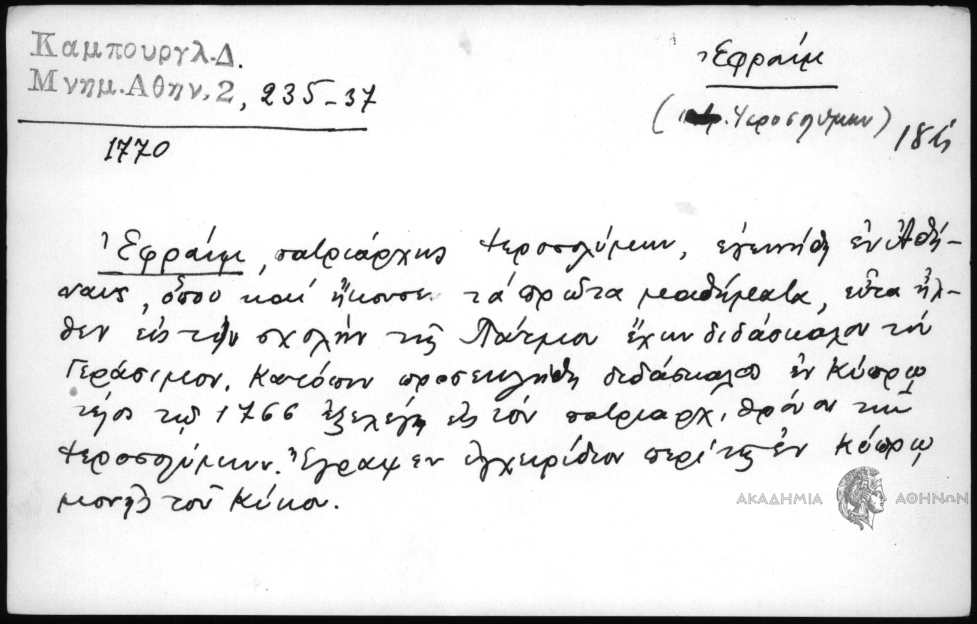 Καμπουργλ.Δ.
Μνημ.Αθην.2, 235-37
1770
Ἐφραίμ
(πατρ. Ἱεροσολύμων)
Ἐφραίμ, πατριάρχης Ἱεροσολύμων, ἐγεννήθη ἐν Ἀθή-
ναις, ὅπου καί ἤκουσεν τά πρῶτα μαθήματα, εἶτα ἦλ-
θεν εἰς τήν σχολήν τῆς Πάτμου ἔχων διδάσκαλον τόν
Γεράσιμον. Κατόπιν προσεκλήθη διδάσκαλος ἐν Κύπρῳ
τέλος τῷ 1766 ἐξελέγη εἰς τόν πατριαρχ. θρόνον τῶν
Ἱεροσολύμων. Ἔγραψεν ἐγχειρίδιον περί τῆς ἐν Κύπρῳ
μονῆς τοῦ Κύκου.
ΑΚΑΔΗΜΙΑ ΑΘΗΝΩΝ